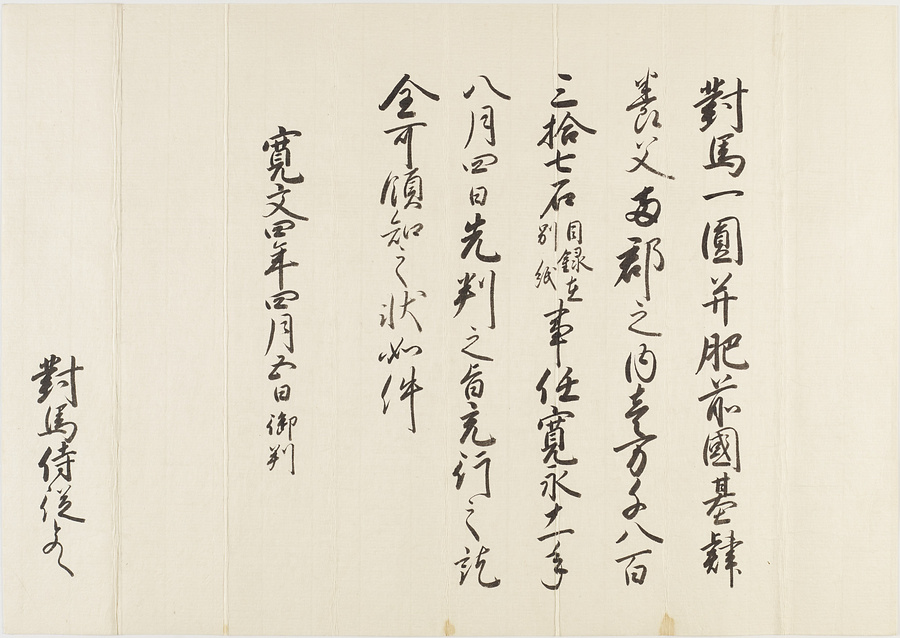 對馬一圓并肥前國基肄
養父兩郡之内壹万千八百
三拾七石目録在別紙事任寛永十一年
八月四日先判之旨充行之訖
全可領知之状如件
寛文四年四月五日御判
對馬侍従とのへ